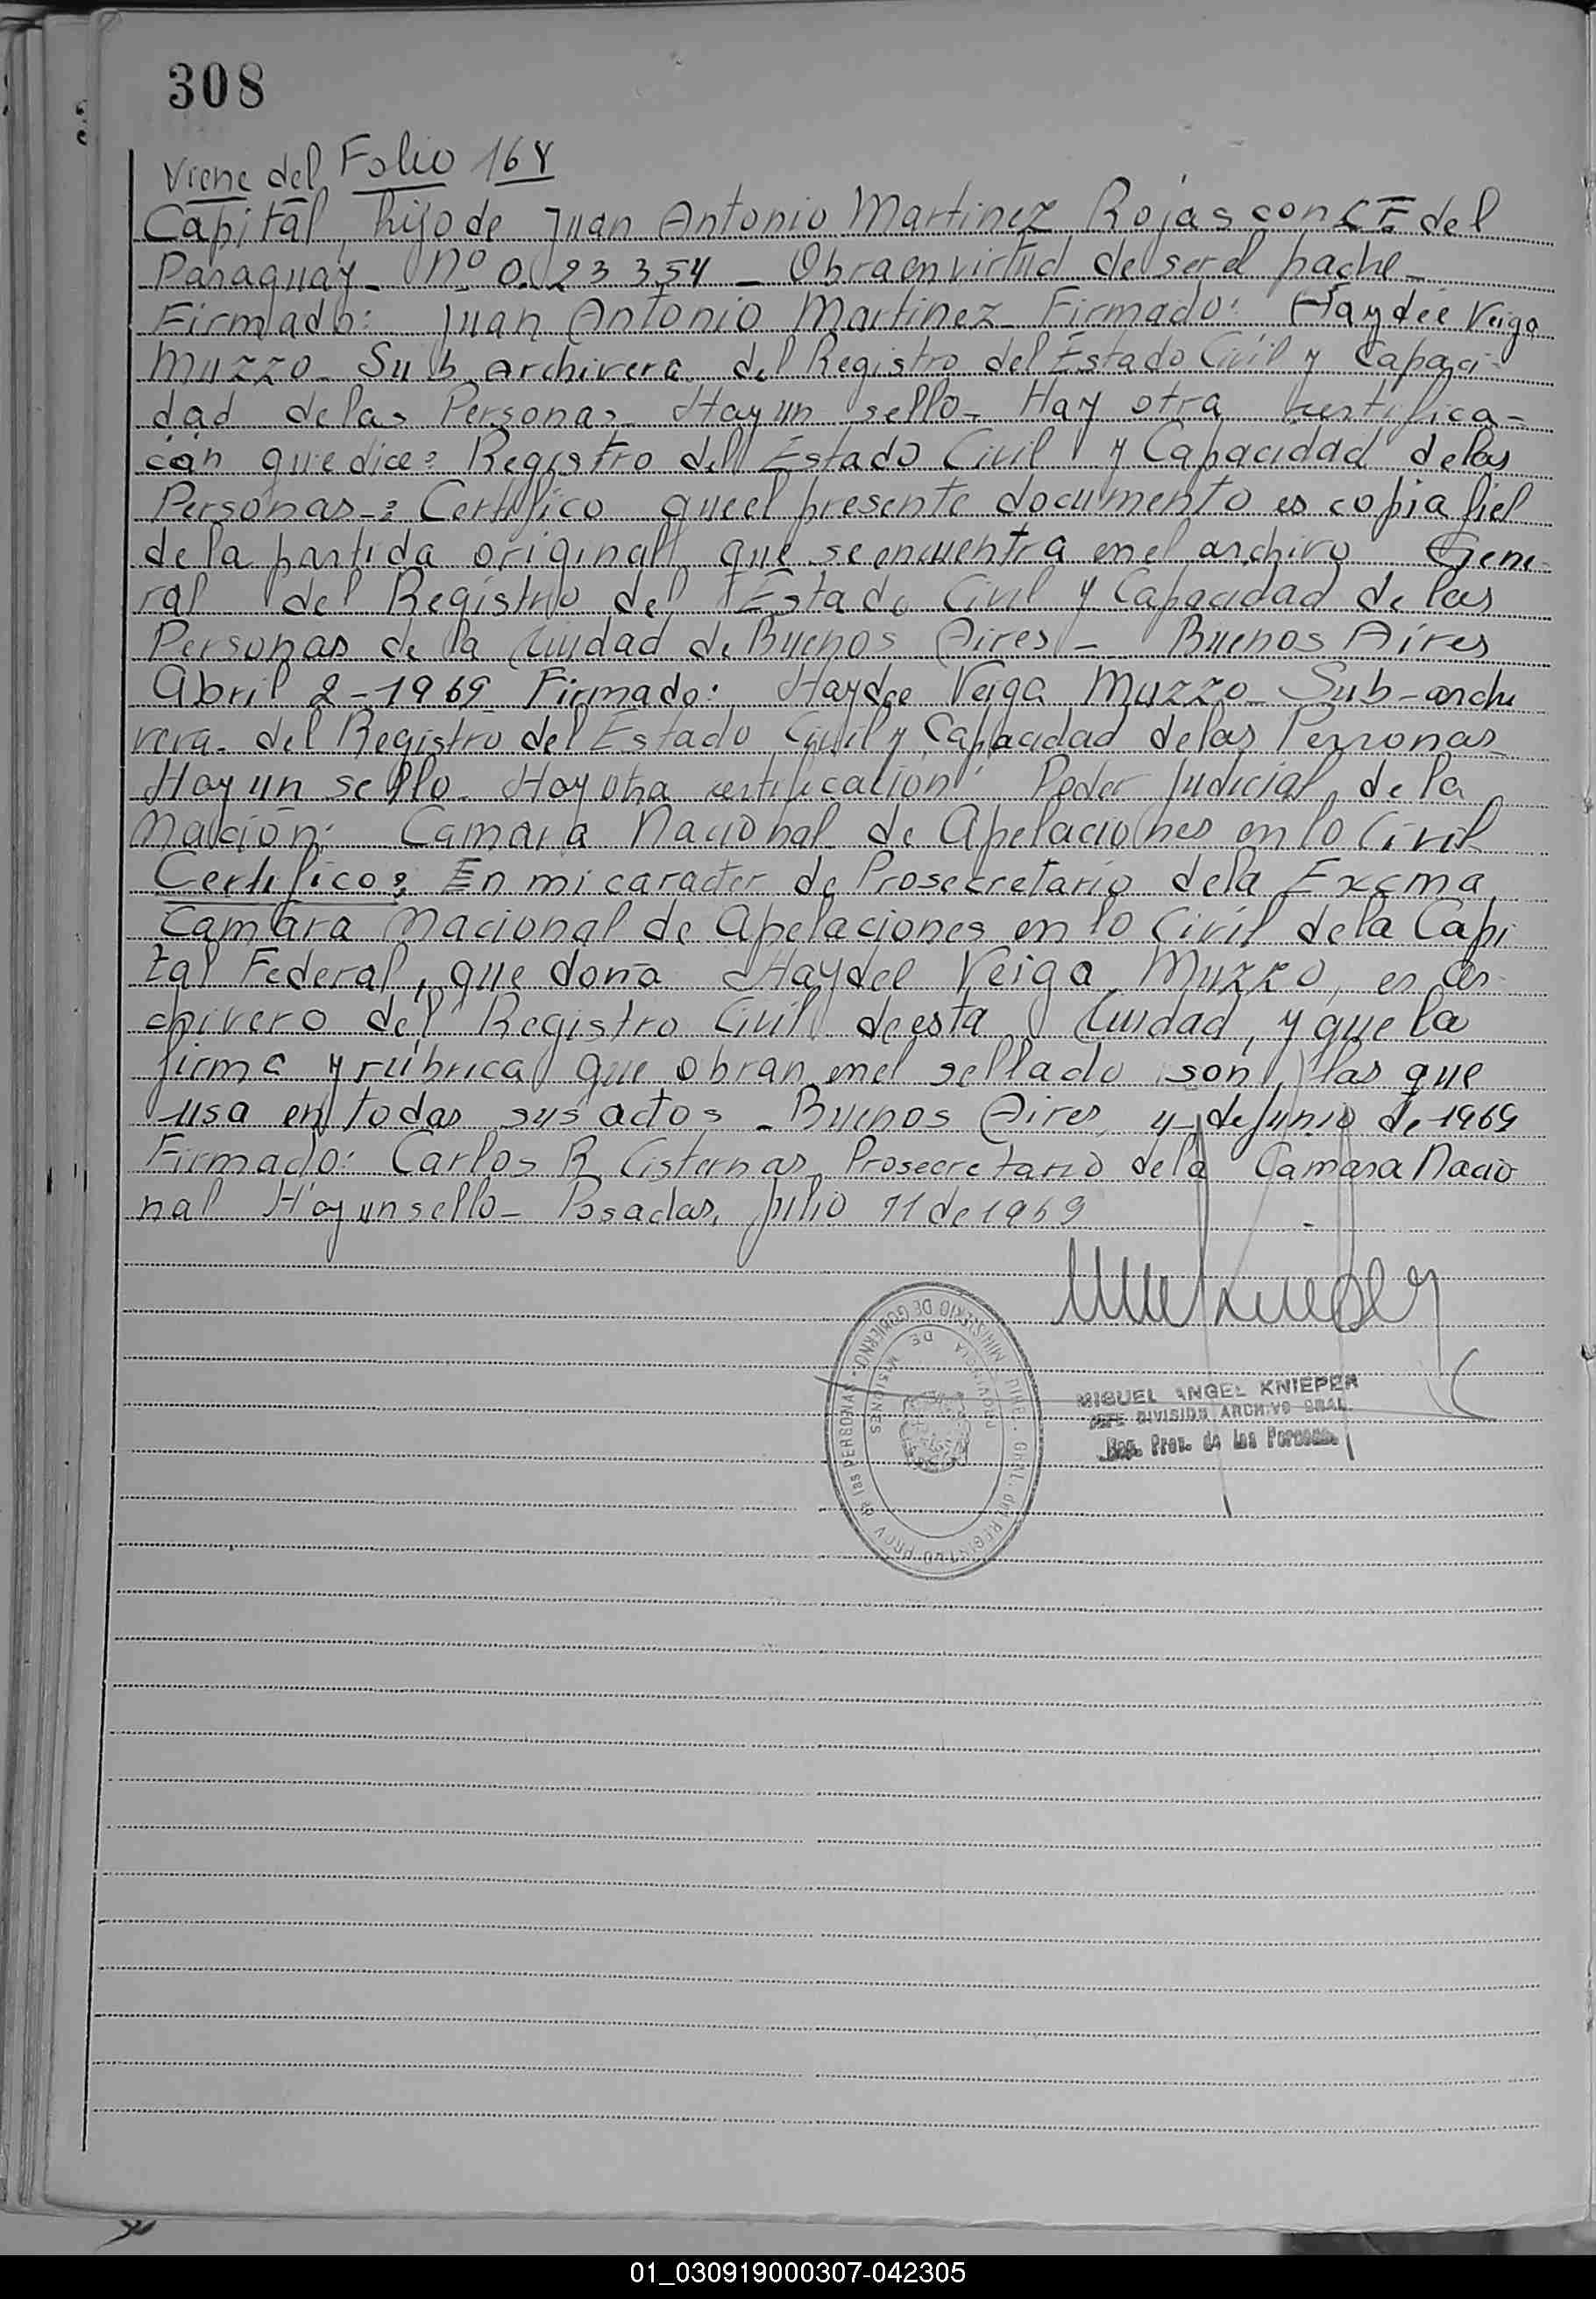 308
Viene del Folio 168
Capital, hijo de Juan Antonio Martinez Rojas con C.E. del
Paraguay - Nº 0.23 354 - Obra en virtud de ser el padre -
Firmado: Juan Antonio Martinez - Firmado: Haydée Veiga
Muzzo - Sub archivera del Registro del Estado Civil y Capaci-
dad de las Personas - Hay un sello - Hay otra certifica-
ción que dice: Registro del Estado Civil y Capacidad de las
Personas -: Certifico que el presente documento es copia fiel
de la partida original que se encuentra en el archivo Gene-
ral del Registro del Estado Civil y Capacidad de las
Personas de la Ciudad de Buenos Aires - Buenos Aires
Abril 2 - 1969 Firmado: Haydee Veiga Muzzo - Sub-archi
vera - del Registro del Estado Civil y Capacidad de las Personas
Hay un sello - Hay otra certificación: Poder Judicial de la
Nación: Camara Nacional de Apelaciones en lo Civil
Certifico: En mi caracter de Prosecretario de la Excma
Camara Nacional de Apelaciones en lo Civil de la Capi
tal Federal, que doña Haydee Veiga Muzzo, es ar
chivero del Registro Civil de esta Ciudad, y que la
firma y rúbrica que obran en el sellado son, las que
usa en todos sus actos - Buenos Aires, 4 de junio de 1969
Firmado: Carlos R Cisternas, Prosecretario de la Camara Nacio
nal Hay un sello - Posadas, julio 11 de 1969
DIRE. GRAL. del REGISTRO PROV de las PERSONAS - MINISTERIO DE GOBIERNO
PROVINCIA DE MISIONES
MIGUEL ANGEL KNIEPER
JEFE DIVISION ARCHIVO GRAL.
Reg. Prov. de las Personas
01_030919000307-042305